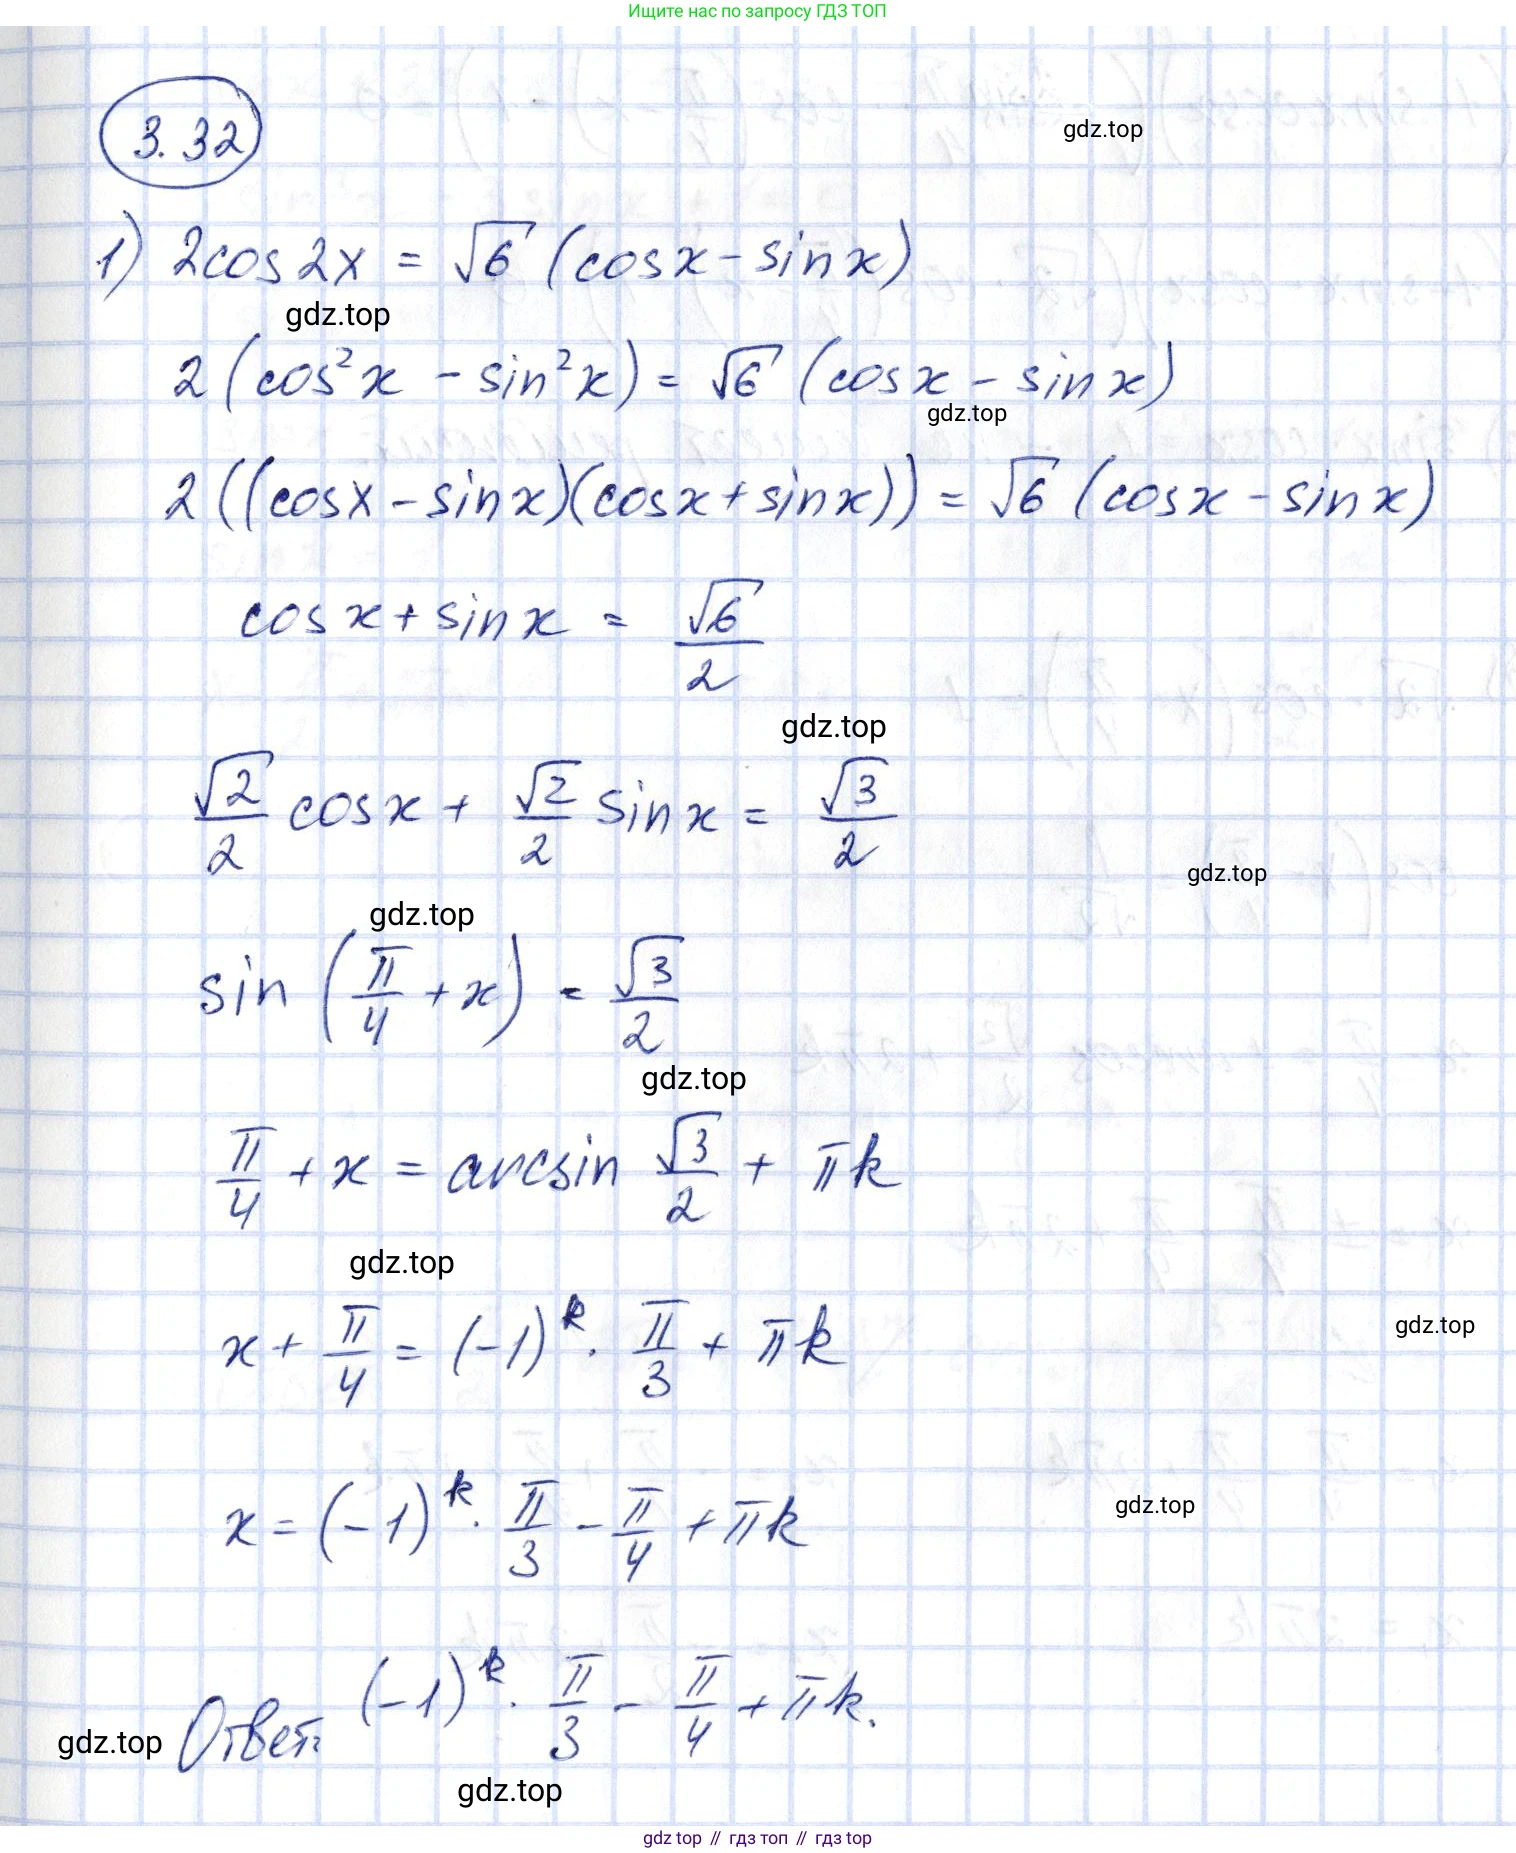 Ищите нас по запросу ГДЗ ТОП
3.32
gdz.top
1) 2cos2x = √6 (cosx - sinx)
gdz.top
2 (cos²x - sin²x) = √6 (cosx - sinx)
gdz.top
2 ((cosx - sinx)(cosx + sinx)) = √6 (cosx - sinx)
cosx + sinx = √6/2
gdz.top
√2/2 cosx + √2/2 sinx = √3/2
gdz.top
gdz.top
sin (π/4 + x) = √3/2
gdz.top
π/4 + x = arcsin √3/2 + πk
gdz.top
x + π/4 = (-1)^k · π/3 + πk
gdz.top
x = (-1)^k · π/3 - π/4 + πk
gdz.top
Ответ: (-1)^k · π/3 - π/4 + πk.
gdz.top
gdz.top
gdz top // гдз топ // гдз top